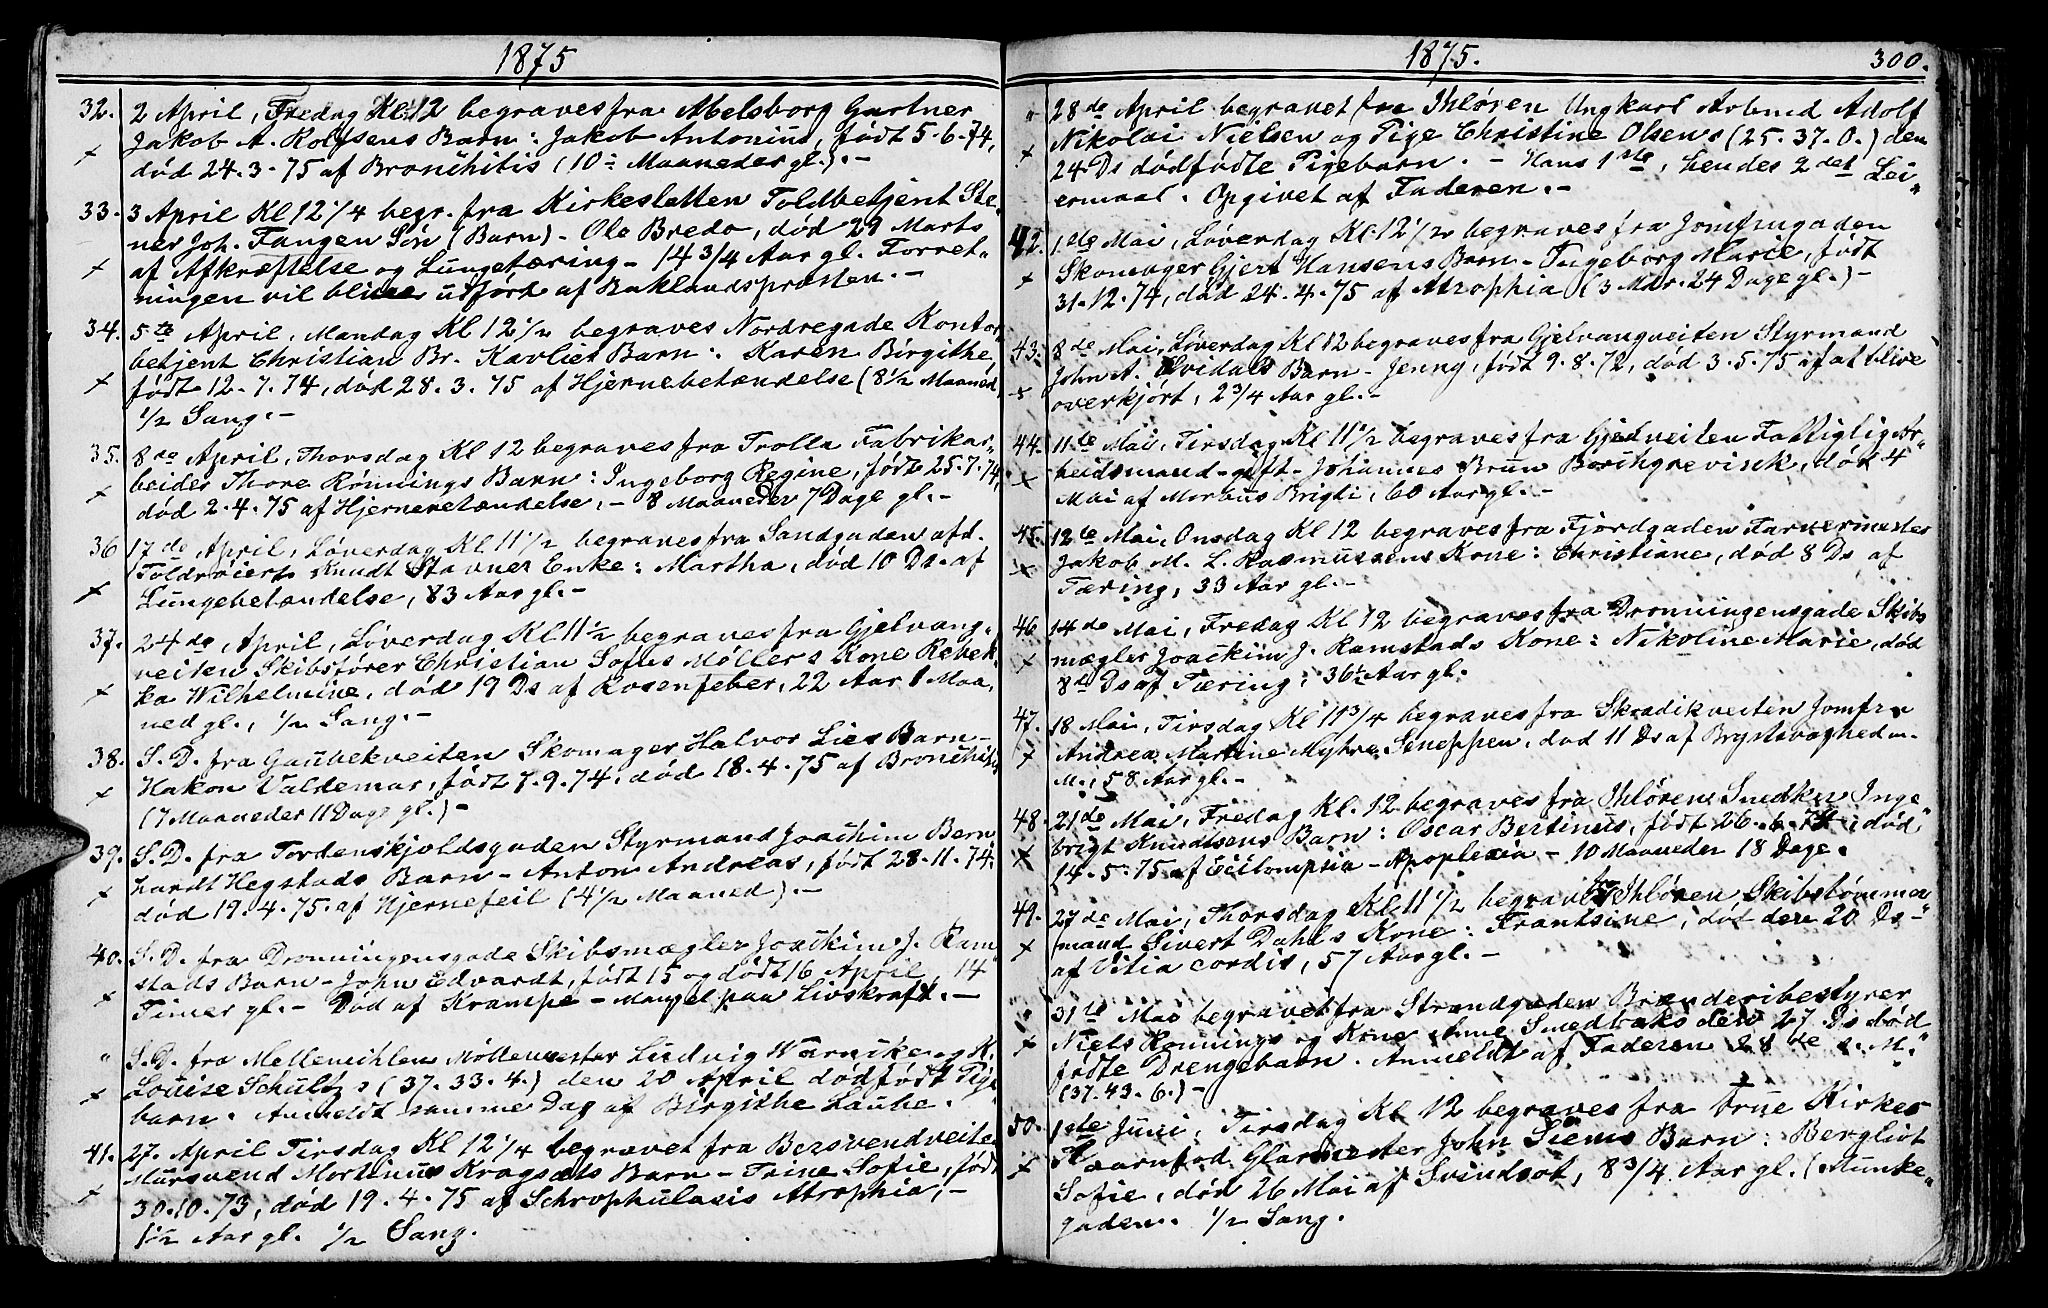 1875
32. 2 April, Fredag Kl 12 begraves fra Abelsborg Gartner
Jakob A. Rolfsens Barn: Jakob Antonius, født 5.6.74,
× død 24.3.75 af Bronchitis (10 Maaneder gl.). —
33. 3 April Kl 12 1/4 begr. fra Kirkesletten Toldbetjent Ste-
ner Joh. Fangen Søn (Barn) - Ole Bredo, død 29 Marts
× af Afkræftelse og Lungetæring - 14 3/4 Aar gl. Forret-
ningen vil blive udført af Baklandspræsten. —
34. 5te April, Mandag Kl 12 1/2 begraves Nordregade Kontor
betjent Christian Br. Kavlies Barn: Karen Birgithe,
× født 12.7.74, død 28.3.75 af Hjernebetændelse (8 1/2 Maaned)
1/2 Sang. —
35. 8de April, Thorsdag Kl 12 begraves fra Trolla Fabrikar-
× beider Thore Rönnings Barn: Ingeborg Regine, født 25.7.74,
død 2.4.75 af Hjernevetændelse, - 8 Maaneder 7 Dage gl. —
36 17de April, Løverdag Kl 11 1/2 begraves fra Sandgaden afd.
Toldrøiert Knudt Stavnes Enke: Martha, død 10 Ds. af
× Lungebetændelse, 83 Aar gl. —
37. 24de April, Løverdag Kl 11 1/2 begraves fra Gjelvang-
veiten Skibsfører Christian Sofus Møllers Kone Rebek-
× ka Wilhelmine, død 19 Ds af Rosenfeber, 22 Aar 1 Maa-
ned gl., 1/2 Sang. —
38. S.D. fra Gaubekveiten Skomager Halvor Lies Barn -
× Hakon Valdemar, født 7.9.74, død 18.4.75 af Bronchitis
(7 Maaneder 11 Dage gl.) —
39. S.D. fra Tordenskjoldsgaden Styrmand Joachim Bern
× hardt Hegstads Barn - Anton Andreas, født 28.11.74,
død 19.4.75 af Hjernefeil (4 1/2 Maaned). —
40. S.D. fra Dronningensgade Skibsmægler Joackim J. Ram
× stads Barn - John Edvardt, født 15 og død 16 April, 14
Timer gl. - Død af Krampe - Mangel paa Livskraft. —
" S.D. fra Mellemihlen Møllemester Ludvig Warnike og K.
× Louise Schultz s (37.33.4.) den 20 April dødfødt Pige
barn. Anmeldt samme Dag af Birgithe Laube.
41. 27. April Tirsdag Kl 12 1/4 begravet fra Bersvendveiten
× Mursvend Mortinus Kragsets Barn - Trine Sofie, født
30.10.73, død 19.4.75 af Schrophulasis Atrophia, -
1 1/2 Aar gl. 1/2 Sang.
1875. 300.
" 28de April begravet fra Ihløren Ungkarl Arbmd Adolf
× Nikolai Nielsen og Pige Christine Olsens (25.37.0.) den
24 Ds dødfødte Pigebarn. - Hans 1ste, hendes 2det Lei-
ermaal. Opgivet af Faderen. —
42. 1ste Mai, Løverdag Kl 12 1/2 begraves fra Jomfrugaden
× Skomager Gjert Hansens Barn - Ingeborg Marie, født
31.12.74, død 24.4.75 af Atrophia (3 Mdr. 24 Dage gl.) —
43. 8de Mai, Løverdag Kl 12 begraves fra Gjelvangveiten Styrmand
John A. Barn - Jenny, født 9.8.72, død 3.5.75 af at blive
× overkjørt, 2 3/4 Aar gl. —
44. 11te Mai, Tirsdag Kl 11 1/2 begraves fra Gjedveiten Fattiglig Ar-
× beidsmand - gift - Johannes Brun Borchgrevinck, død 4
Mai af Morbus Brigti, 60 Aar gl. —
45. 12te Mai, Onsdag Kl 12 begraves fra Fjordgaden Farvermester
× Jakob M. L. Rasmussens Kone: Christiane, død 8 Ds af
Tæring, 33 Aar gl. —
46. 14de Mai, Fredag Kl 12 begraves fra Dronningensgade Skibs
× mægler Joackim J. Ramstads Kone: Nikoline Marie, død
8de Ds af Tæring, 36 1/2 Aar gl.
47. 18 Mai, Tirsdag Kl 11 3/4 begraves fra Skradikveiten Jomfru
× Andrea Martine Myhre Seneppen, død 11 Ds af Brystsvaghed m.
M., 58 Aar gl. —
48. 21de Mai, Fredag Kl. 12 begraves fra Ihløren Snedker Inge-
× brigt Knudtsens Barn: Oscar Bertinus, født 26.6.74, død
14.5.75 af Apoplexia - 10 Maaneder 18 Dage.
49. 27de Mai, Thorsdag Kl 11 1/2 begraves fra Ihløren Skibstömmer-
× mand Sivert Dahls Kone: Frantsine, død den 20 Ds -
af Vitia cordis, 57 Aar gl. —
" 31te Mai begravet fra Strandgaden Brænderibestyrer
× Niels Rønnings og Kone Anne Smedbaks den 27 Ds død
fødte Drengebarn. Anmeldt af Faderen 28de s. M.
(37.43.6.) —
50. 1ste Juni, Tirsdag Kl 12 begraves fra Frue Kirkes
× Taarnfod Glarmester John Siems Barn: Bergliot
Sofie, død 26 Mai af Svindsot, 8 3/4 Aar gl. (Munke-
gaden. 1/2 Sang.